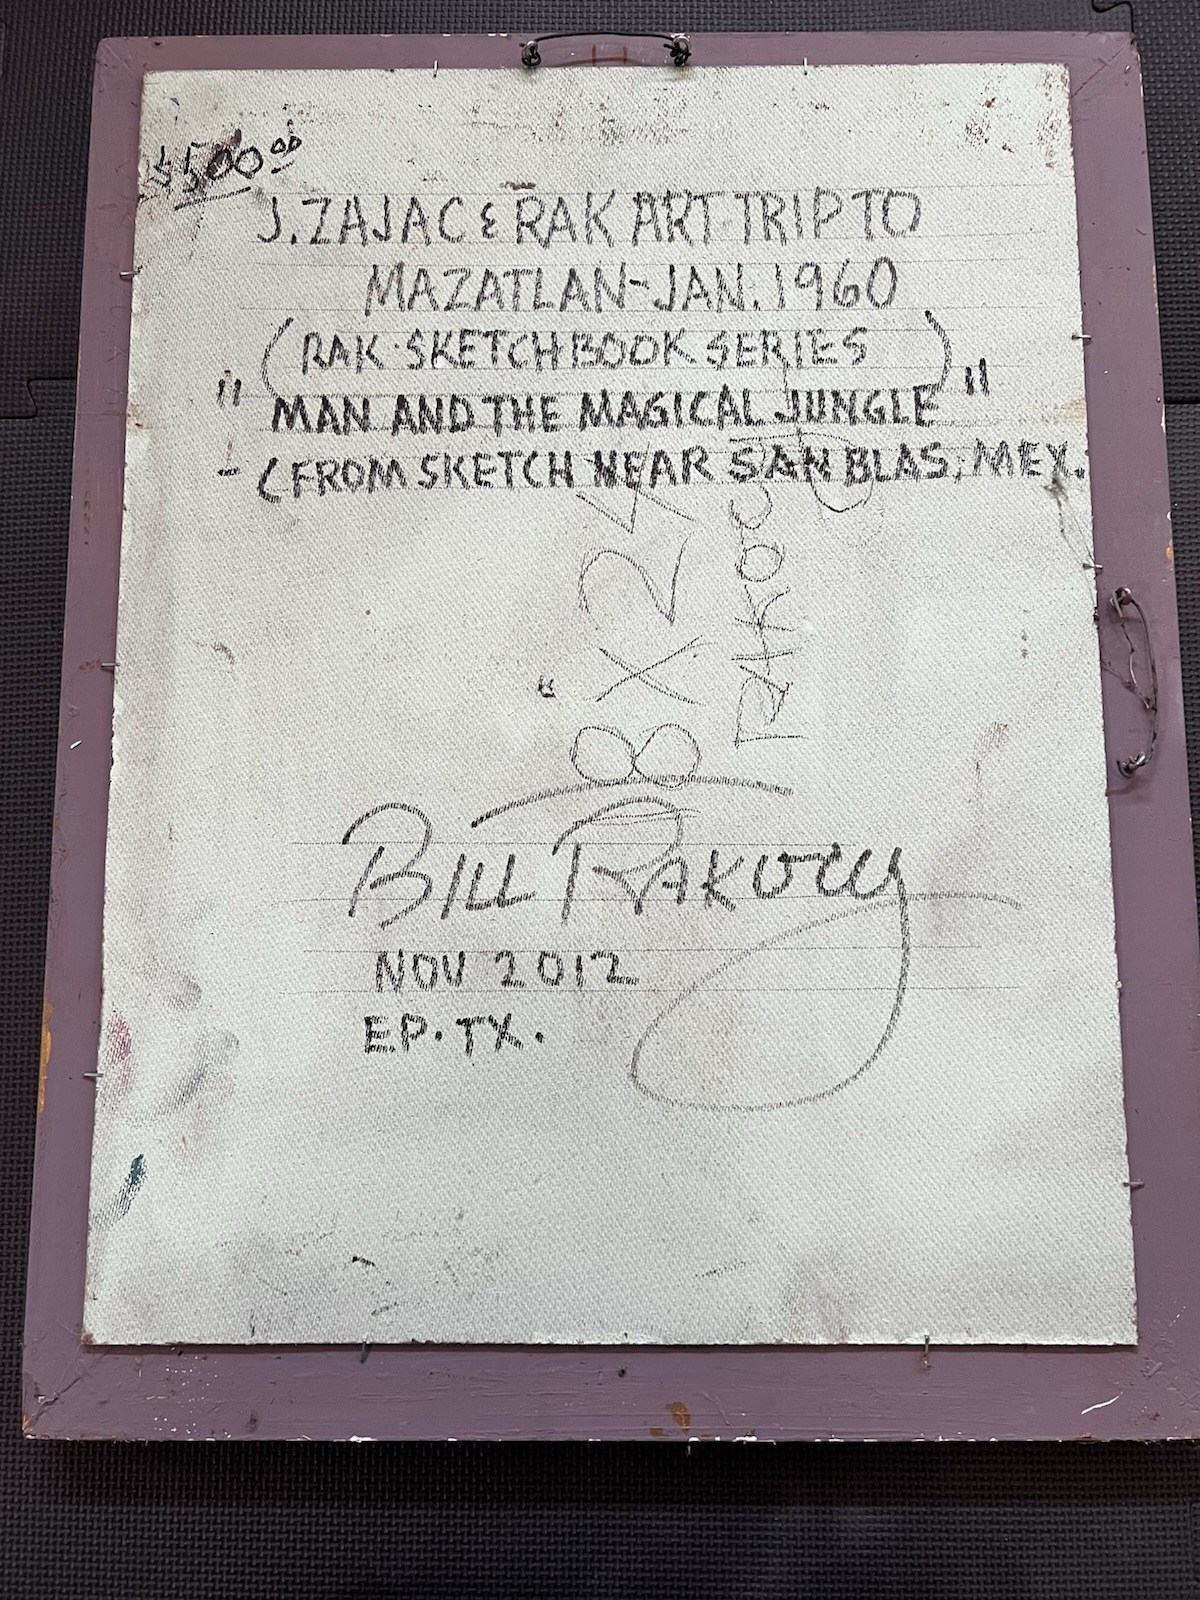 $500.00
J. ZAJAC & RAK ART TRIP TO
MAZATLAN-JAN. 1960
(RAK SKETCHBOOK SERIES)
"MAN AND THE MAGICAL JUNGLE"
- (FROM SKETCH NEAR SAN BLAS, MEX.
18 X 24
BILL RAKOCY
NOV 2012
EP. TX.